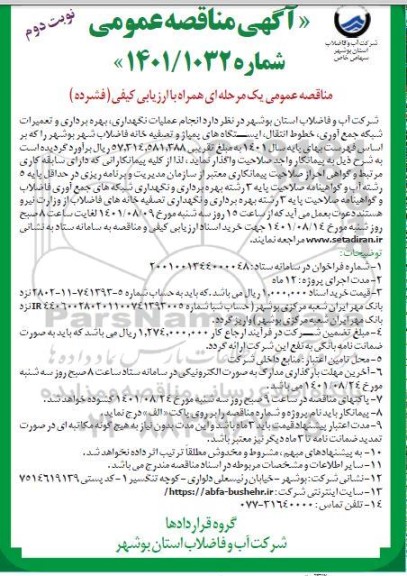 نوبت دوم
« آگهی مناقصه عمومی
شماره ۱۴۰۱/۱۰۳۲ »
شرکت آب و فاضلاب
استان بوشهر
سهامی خاص
مناقصه عمومی یک مرحله ای همراه با ارزیابی کیفی ( فشرده )
شرکت آب و فاضلاب استان بوشهر در نظر دارد انجام عملیات نگهداری، بهره برداری و تعمیرات
شبکه جمع آوری، خطوط انتقال، ایستگاه های پمپاژ و تصفیه خانه فاضلاب شهر بوشهر را که بر
اساس فهرست بهای پایه سال ۱۴۰۱ به مبلغ تقریبی ۵۷,۳۱۴,۵۸۱,۳۸۸ ریال برآورد گردیده است
به شرح ذیل به پیمانکار واجد صلاحیت واگذار نماید، لذا از کلیه پیمانکارانی که دارای سابقه کاری
مرتبط و گواهی احراز صلاحیت پیمانکاری معتبر از سازمان مدیریت و برنامه ریزی در حداقل پایه ۵
رشته آب و گواهینامه صلاحیت پایه ۳ رشته بهره برداری و نگهداری شبکه های جمع آوری فاضلاب
و گواهینامه صلاحیت پایه ۳ رشته بهره برداری و نگهداری تصفیه خانه های فاضلاب از وزارت نیرو
هستند دعوت بعمل می آید که از ساعت ۱۵ روز سه شنبه مورخ ۱۴۰۱/۰۸/۰۹ لغایت ساعت ۸ صبح
روز شنبه مورخ ۱۴۰۱/۰۸/۱۴ جهت خرید اسناد ارزیابی کیفی و مناقصه به سامانه ستاد به نشانی
www.setadiran.ir مراجعه نمایند.
توضیحات :
۱- شماره فراخوان در سامانه ستاد: ۲۰۰۱۰۰۱۳۴۴۰۰۰۰۴۸
۲- مدت اجرای پروژه: ۱۲ ماه
۳- قیمت خرید اسناد ۱,۰۰۰,۰۰۰ ریال می باشد. که باید به حساب شماره ۵-۷۴۱۳۹۳-۱۱-۲۸۰۲ نزد
بانک مهر ایران شعبه مرکزی بوشهر ( حساب شبا شماره IR۴۴۰۶۰۰۲۸۰۲۰۱۱۰۰۷۴۱۳۹۳۰۰۵ نزد
بانک مهر ایران شعبه مرکزی بوشهر) واریز گردد.
۴- مبلغ تضمین شرکت در فرآیند ارجاع کار ۱,۲۷۴,۰۰۰,۰۰۰ ریال می باشد که باید به صورت
ضمانت نامه بانکی به نفع این شرکت ارائه گردد.
۵- محل تامین اعتبار: منابع داخلی شرکت
۶- آخرین مهلت بارگذاری مدارک به صورت الکترونیکی در سامانه ستاد ساعت ۸ صبح روز سه شنبه
مورخ ۱۴۰۱/۰۸/۲۴ می باشد.
۷- پاکتهای مناقصه در ساعت ۹ صبح روز سه شنبه مورخ ۱۴۰۱/۰۸/۲۴ گشوده خواهد شد.
۸- پیمانکار باید نام پروژه و شماره مناقصه را بر روی پاکت «الف» درج نماید.
۹- مدت اعتبار پیشنهاد قیمت باید ۳ ماه باشد و این مدت بدون نیاز به هیچ گونه مکاتبه ای در صورت
تمدید ضمانت نامه تا ۳ ماه دیگر نیز معتبر باشد.
۱۰- به پیشنهادهای مبهم، مشروط و مخدوش مطلقا ترتیب اثر داده نخواهد شد.
۱۱- سایر اطلاعات و مشخصات مربوطه در اسناد مناقصه مندرج می باشد.
۱۲- نشانی شرکت: بوشهر - خیابان رئیسعلی دلواری - کوچه تنگسیر ۱ - کد پستی ۷۵۱۴۶۱۹۱۳۹
۱۳- سایت اینترنتی شرکت: https://abfa-bushehr.ir/
۱۴- تلفن تماس: ۳۱۶۴۰۰۰۰-۰۷۷
گروه قراردادها
شرکت آب و فاضلاب استان بوشهر